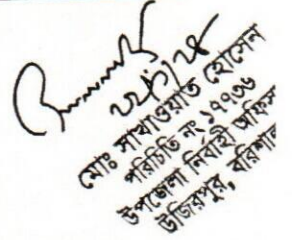 ২২/১/২৫
মোঃ সাখাওয়াত হোসেন
পরিচিতি নং ১৭৭৩৬
উপজেলা নির্বাহী অফিস
উজিরপুর, বরিশাল